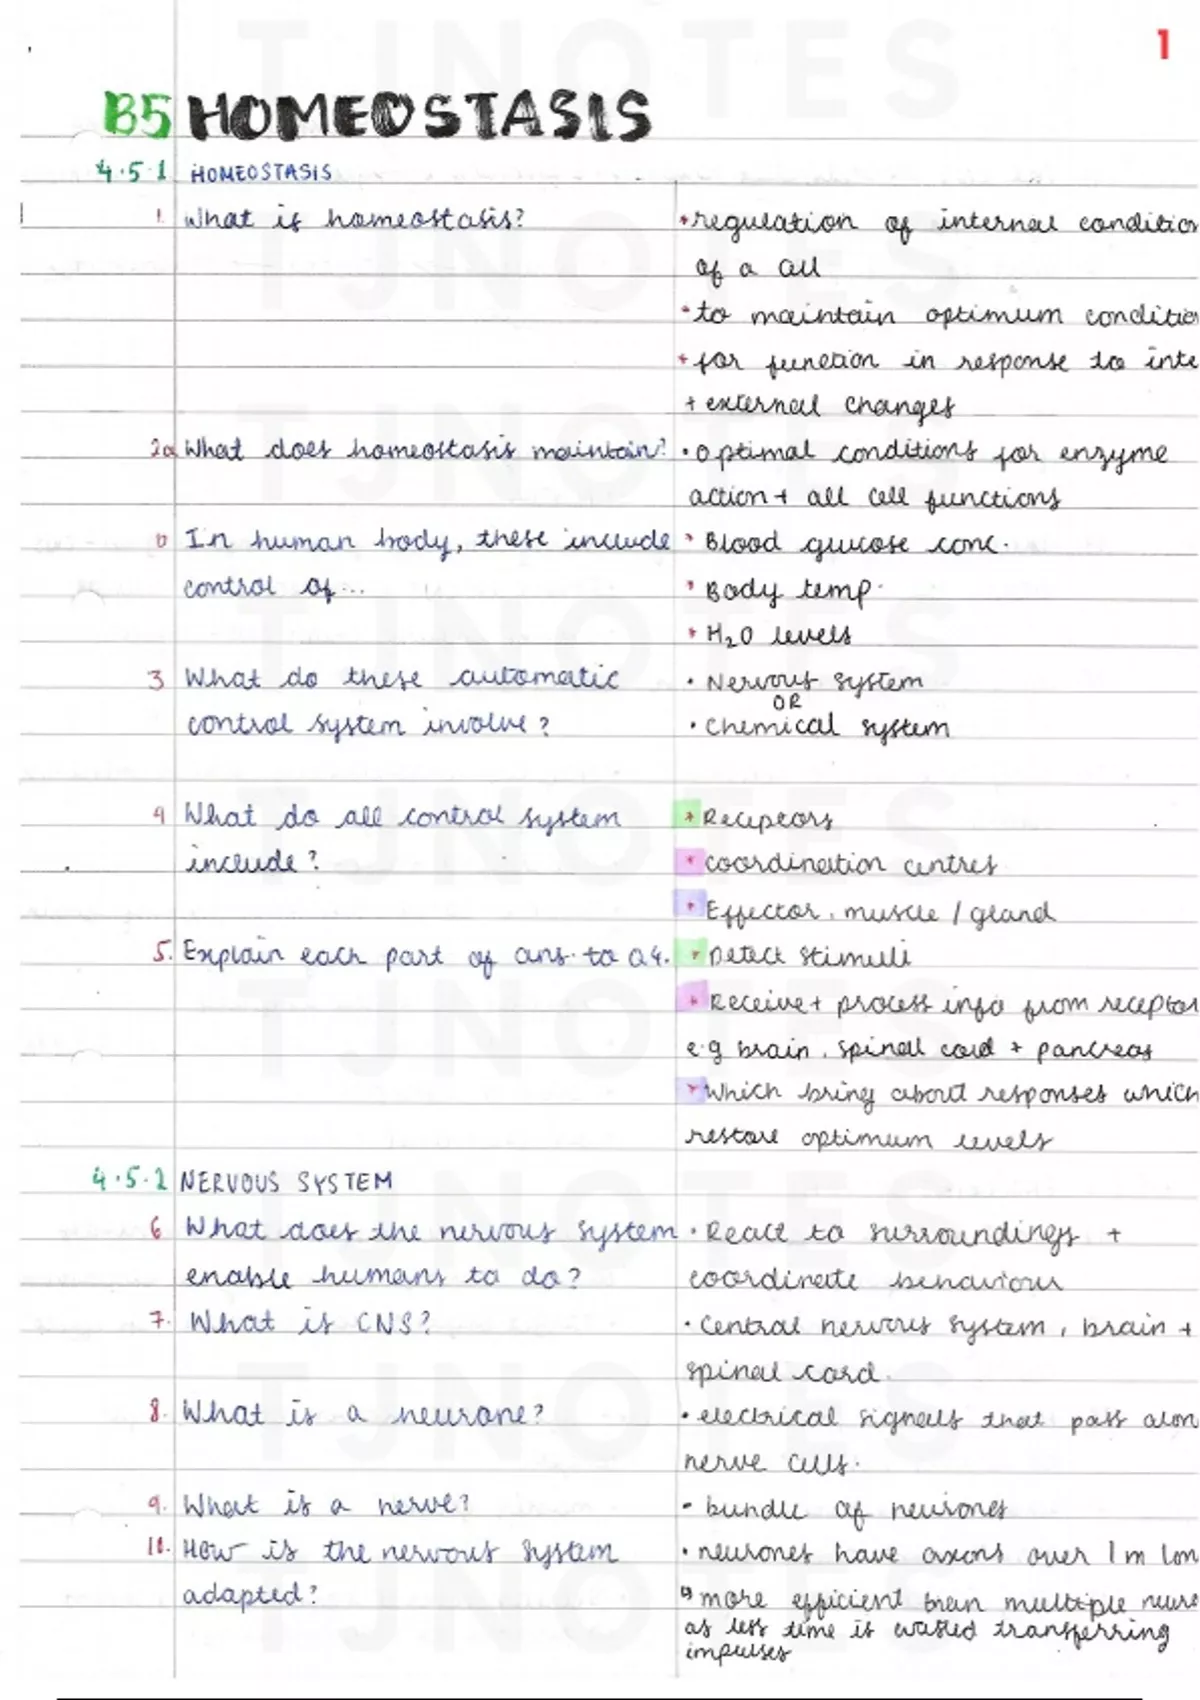 1
B5 HOMEOSTASIS
4.5.1 HOMEOSTASIS
1. What is homeostasis? * regulation of internal condition
of a cell
* to maintain optimum conditio
* for function in response to inte
+ external changes
2a What does homeostasis maintain? • optimal conditions for enzyme
action + all cell functions
b In human body, these include * Blood glucose conc.
control of... * Body temp.
* H₂O levels
3 What do these automatic • Nervous system
OR
control system involve? • chemical system
4 What do all control system * Receptors
include? * coordination centres
* Effector, muscle / gland
5. Explain each part of ans. to Q4. * Detect stimuli
* Receive + process info from receptor
e.g brain, spinal cord + pancreas
* Which bring about responses which
restore optimum levels
4.5.2 NERVOUS SYSTEM
6 What does the nervous system • React to surroundings +
enable humans to do? coordinate behaviour
7. What is CNS? • Central nervous system, brain +
spinal cord.
8. What is a neurone? • electrical signals that pass alon
nerve cells.
9. What is a nerve? • bundle of neurones
10. How is the nervous system • neurones have axons over 1m lon
adapted? ↳ more efficient than multiple neuro
as less time is wasted transferring
impulses
TJNOTES
TJNOTES
TJNOTES
TJNOTES
TJNOTES
TJNOTES
TJNOTES
TJNOTES
TJNOTES